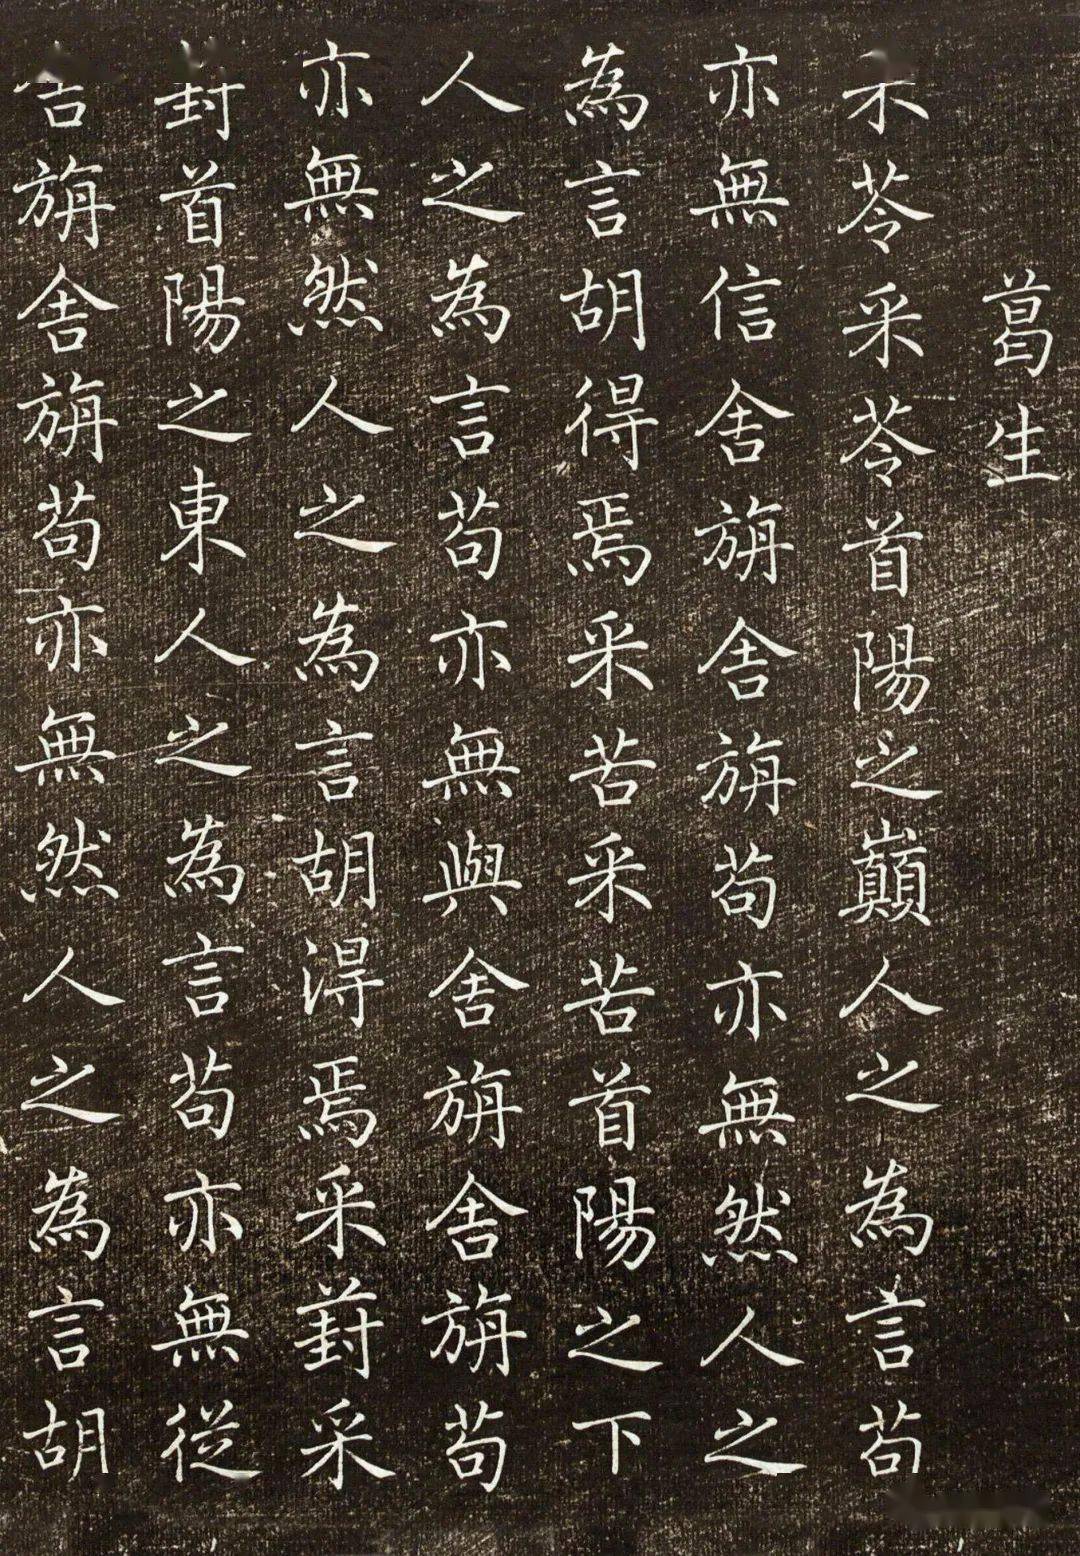 葛生
采苓采苓首陽之巔人之為言苟
亦無信舍旃舍旃苟亦無然人之
為言胡得焉采苦采苦首陽之下
人之為言苟亦無與舍旃舍旃苟
亦無然人之為言胡得焉采葑采
葑首陽之東人之為言苟亦無從
舍旃舍旃苟亦無然人之為言胡